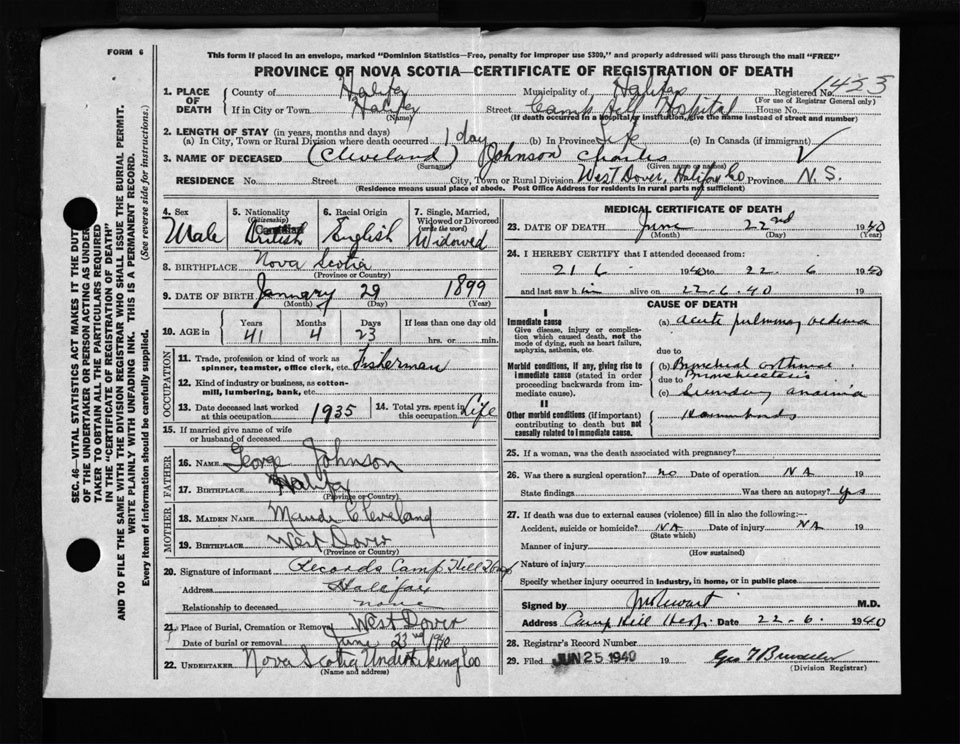 FORM 6
This form if placed in an envelope, marked "Dominion Statistics—Free, penalty for improper use $300," and properly addressed will pass through the mail "FREE"
PROVINCE OF NOVA SCOTIA—CERTIFICATE OF REGISTRATION OF DEATH
1. PLACE OF DEATH
County of Halifax Municipality of Halifax Registered No.
(For use of Registrar General only)
If in City or Town Halifax Street Camp Hill Hospital House No.
(Name) (If death occurred in a hospital or institution, give the name instead of street and number)
2. LENGTH OF STAY (in years, months and days)
(a) In City, Town or Rural Division where death occurred 1 day (b) In Province Life (c) In Canada (if immigrant)
3. NAME OF DECEASED (Cleveland) Johnson Charles
(Surname) (Given name or names)
RESIDENCE No. Street City, Town or Rural Division West Dover, Halifax Co Province N. S.
(Residence means usual place of abode. Post Office Address for residents in rural parts not sufficient)
SEC. 46—VITAL STATISTICS ACT MAKES IT THE DUTY
OF THE UNDERTAKER OR PERSON ACTING AS UNDER-
TAKER TO OBTAIN ALL THE PARTICULARS REQUIRED
IN THE "CERTIFICATE OF REGISTRATION OF DEATH"
AND TO FILE THE SAME WITH THE DIVISION REGISTRAR WHO SHALL ISSUE THE BURIAL PERMIT.
WRITE PLAINLY WITH UNFADING INK. THIS IS A PERMANENT RECORD.
Every item of information should be carefully supplied. (See reverse side for instructions.)
4. Sex
Male
5. Nationality
(Citizenship)
British
6. Racial Origin
English
7. Single, Married, Widowed or Divorced
(write the word)
Widowed
8. BIRTHPLACE Nova Scotia
(Province or Country)
9. DATE OF BIRTH January 29 1899
(Month) (Day) (Year)
10. AGE in Years Months Days If less than one day
41 4 23 hrs. or min.
OCCUPATION
11. Trade, profession or kind of work as
spinner, teamster, office clerk, etc. Fisherman
12. Kind of industry or business, as cotton-
mill, lumbering, bank, etc.
13. Date deceased last worked
at this occupation 1935
14. Total yrs. spent in
this occupation Life
15. If married give name of wife
or husband of deceased
FATHER
16. NAME George Johnson
17. BIRTHPLACE Halifax
(Province or Country)
MOTHER
18. MAIDEN NAME Maude Cleveland
19. BIRTHPLACE West Dover
(Province or Country)
20. Signature of informant Records Camp Hill Hosp
Address Halifax
Relationship to deceased none
21. Place of Burial, Cremation or Removal West Dover
Date of burial or removal June 23nd 1940
22. UNDERTAKER Nova Scotia Undertaking Co
(Name and address)
MEDICAL CERTIFICATE OF DEATH
23. DATE OF DEATH June 22nd 1940
(Month) (Day) (Year)
24. I HEREBY CERTIFY that I attended deceased from:
21 6 1940 to 22 6 1940
and last saw him alive on 22-6-40 19
CAUSE OF DEATH
I
Immediate cause
Give disease, injury or complica-
tion which caused death, not the
mode of dying, such as heart failure,
asphyxia, asthenia, etc.
(a) Acute pulmonary oedema
due to
Morbid conditions, if any, giving rise to
immediate cause (stated in order
proceeding backwards from im-
mediate cause).
(b) Bronchial asthma
due to Bronchiectasis
(c) Secondary anaemia
II
Other morbid conditions (if important)
contributing to death but not
causally related to immediate cause.
Haemorrhoids
25. If a woman, was the death associated with pregnancy?
26. Was there a surgical operation? no Date of operation NA 19
State findings Was there an autopsy? Yes
27. If death was due to external causes (violence) fill in also the following:—
Accident, suicide or homicide? NA Date of injury NA 19
(State which)
Manner of injury
(How sustained)
Nature of injury
Specify whether injury occurred in industry, in home, or in public place
Signed by M.D.
Address Camp Hill Hosp. Date 22-6. 1940
28. Registrar's Record Number
29. Filed JUN 25 1940 19
(Division Registrar)